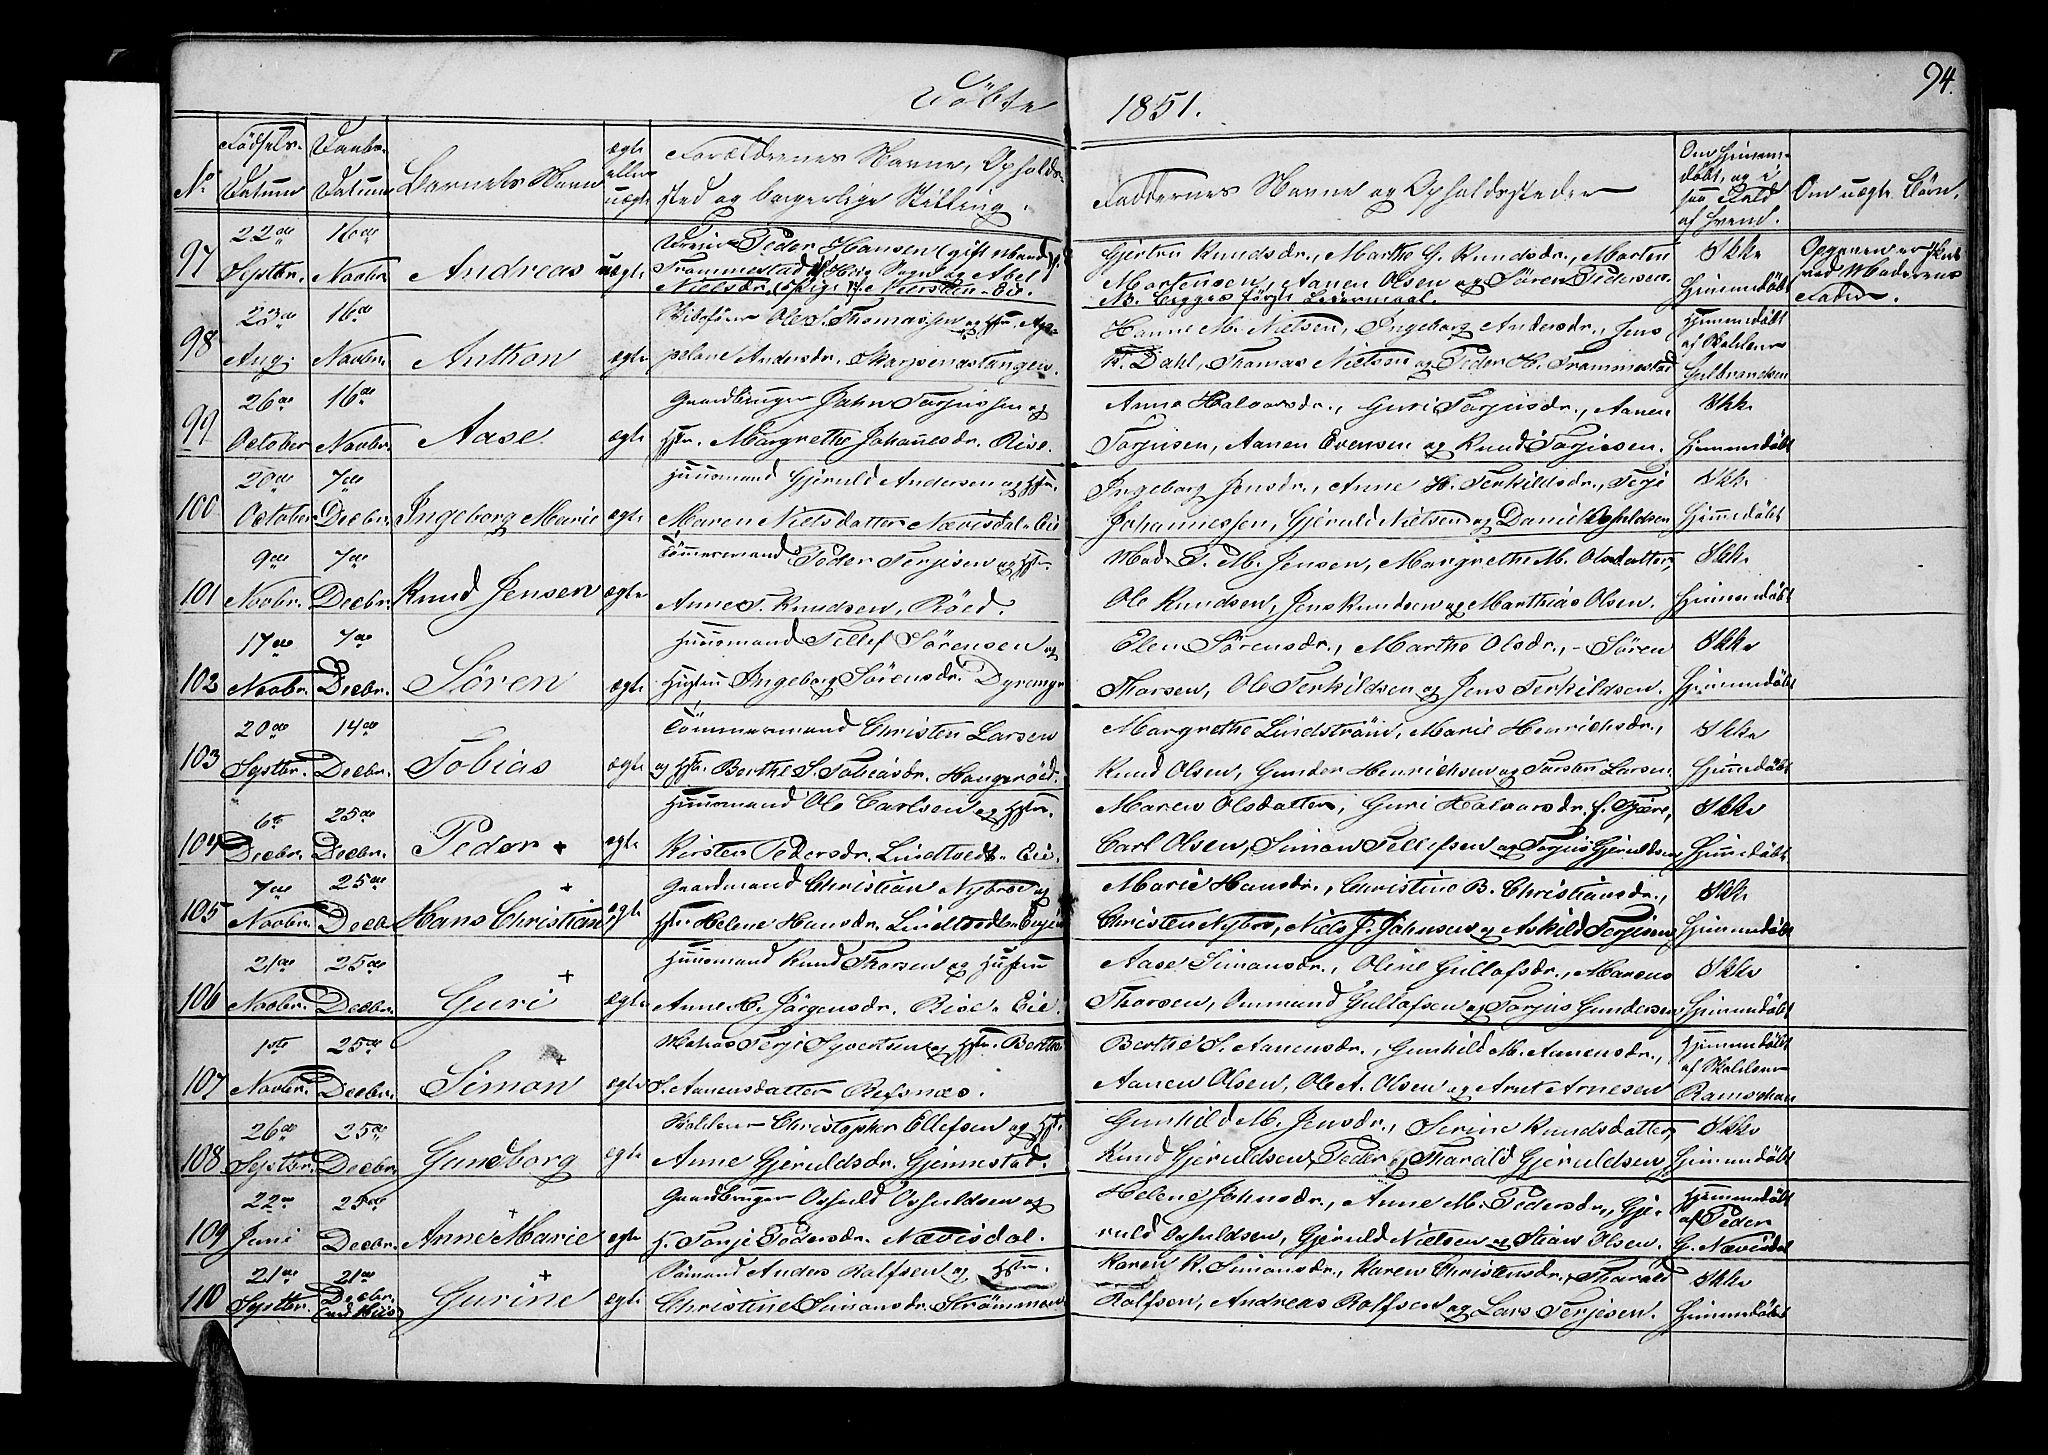 Döbte
1851.
94.
No.
Födsels-
Datum
Daabs-
Datum
Barnets Navn
ægte
eller
uægte
Forældrenes Navne, Opholds-
sted og borgerlige Stilling.
Faddernes Navne og Opholdssteder
Om hjemme-
döbt, og i
saa Fald
af hvem.
Om uægte Börn.
97
22de
Septbr.
16de
Novbr.
Andreas
uægte
Peder Hansen (gift Mand)
Trommestad Sogn og Abel
Nielsdr. (Pige) Eie.
Gjertru Knudsdr., Marthe G. Knudsdr., Morten
Mortensen, Aanen Olsen og Sören Pedersen.
NB. Begges förste Leiermaal.
Ikke
hjemmedöbt
Opgaven er skeet
ved Moderens
Fader.
98
23de
Aug.
16de
Novbr.
Anthon
ægte
Skibsförer Ole S. Thomassen og Hstr. Ap-
pelone Andersdr. Skarpenæstangen.
Hanne M. Nielsen, Ingeborg Andersdr., Jens
K. Dahl, Thomas Nielsen og Peder H. Trommestad
Hjemmedöbt
af Skolelærer
Gulbrandsen
99
26de
October
16de
Novbr.
Aase
ægte
Gaardbruger John Torjussen og
Hstr. Margrethe Johannesdr. Rise.
Anne Halvorsdr., Guri Torjusdr., Aanen
Torjusen, Aanen Evensen og Knud Torjusen.
Ikke
hjemmedöbt
100
20de
October
7de
Decbr.
Ingeborg Marie
ægte
Huusmand Gjeruld Andersen og Hstr.
Maren Nielsdatter Nævisdal-Eie
Ingeborg Jensdr., Anne H. Terkildsdr., Terje
Johannessen, Gjeruld Nielsen og Daniel Osuldsen
Ikke
hjemmedöbt
101
9de
Novbr.
7de
Decbr.
Knud Jensen
ægte
Tömmermand Peder Terjesen og Hstr.
Anne T. Knudsen, Röed.
Mad. T. M. Jensen, Margrethe M. Olsdatter,
Ole Knudsen, Jens Knudsen og Marthias Olsen.
Ikke
hjemmedöbt
102
17de
Novbr.
7de
Decbr.
Sören
ægte
Huusmand Tellef Sörensen og
Hustru Ingeborg Sörensdr. Dyremyr
Elen Sörensdr., Marthe Olsdr., - Sören
Thorsen, Ole Terkildsen og Jens Terkildsen.
Ikke
hjemmedöbt
103
20de
Septbr.
14de
Decbr.
Tobias
ægte
Tömmermand Christen Larsen
og Hstr. Berthe S. Tobiasdr. Hangeröed.
Margrethe Lindström, Marie Henrichsdr.,
Knud Olsen, Gunder Henrichsen og Torsten Larsen
Ikke
hjemmedöbt
104
6te
Decbr.
25de
Decbr.
Peder +
ægte
Huusmand Ole Carlsen og Hstr.
Kirsten Pedersdr. Lindtvedt-Eie.
Maren Olsdatter, Guri Halvorsdr. f. Tjære,
Carl Olsen, Simon Tellefsen og Torjus Gjeruldsen
Ikke
hjemmedöbt
105
7de
Novbr.
25de
Decbr.
Hans Christian +
ægte
Gaardmand Christian Nybroe og
Hstr. Helene Hansdr. Lindtvedt
Marie Hansdr., Christine B. Christiansdr.,
Christen Nybro, Niels J. Johnsen og Askild Terjesen
Ikke
hjemmedöbt
106
21de
Novbr.
25de
Decbr.
Guri +
ægte
Huusmand Knud Thorsen og Hustru
Anne H. Jörgensdr. Rise-Eie.
Aase Simonsdr., Oline Gullofsdr., Marcus
Thorsen, Ommund Gullofsen og Torjus Gundersen
Ikke
hjemmedöbt
107
1ste
Novbr.
25de
Decbr.
Simon +
ægte
Matros Terje Syvertsen og Hstr. Berthe
S. Aanensdatter Refsnæs.
Berthe S. Aanensdr., Gunhild M. Aanensdr.,
Aanen Olsen, Ole A. Olsen og Arnt Arnesen
Hjemmedöbt
af Skolelærer
108
26de
Septbr.
25de
Decbr.
Gundborg
ægte
Skolelærer Christopher Ellefsen og Hstr.
Anne Gjeruldsdr. Gjennestad.
Gunhild M. Jensdr., Serine Knudsdatter,
Knud Gjeruldsen, Peder og Tharald Gjeruldsen
Ikke
hjemmedöbt
109
22de
Juni
25de
Decbr.
Anne Marie +
ægte
Gaardbruger Osuld Osuldsen og
H. Tonje Pedersdr. Nævisdal.
Helene Johnsdr., Anne M. Pedersdr., Gje-
ruld Osuldsen, Gjeruld Nielsen og Stian Olsen.
Hjemmedöbt
af Peder
G. Nævisdal
110
21de
Septbr.
21de
Decbr.
Gurine +
ægte
Sömand Anders Rolfsen og Hstr.
Christine Simonsdr. Strömmen
Karen K. Simonsdr., Karen Christensdr., Tharald
Rolfsen, Andreas Rolfsen og Lars Terjesen.
Ikke
hjemmedöbt